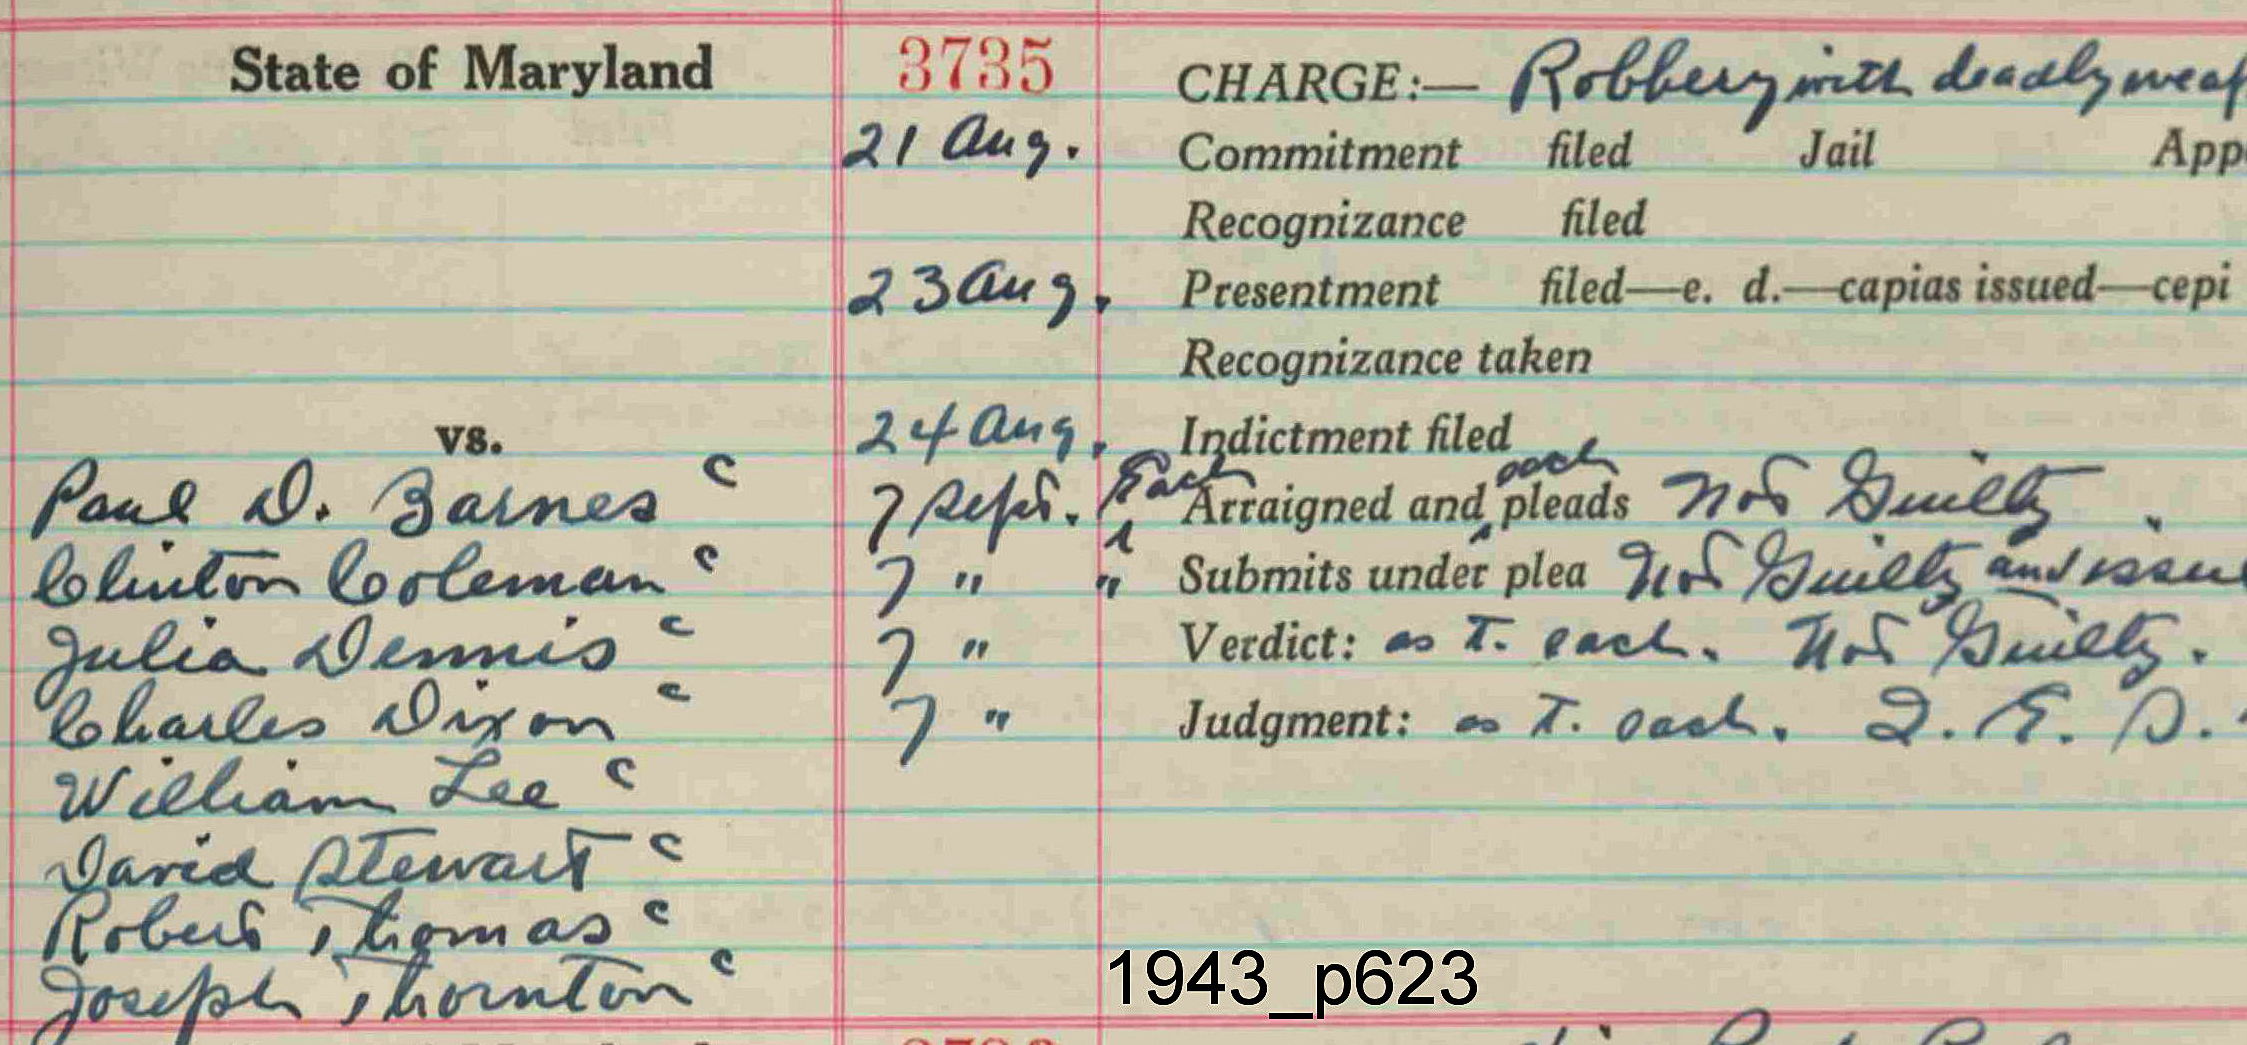 State of Maryland 3735 CHARGE:— Robbery with deadly weap
21 Aug. Commitment filed Jail App
Recognizance filed
23 Aug. Presentment filed—e. d.—capias issued—cepi
Recognizance taken
vs. 24 Aug. Indictment filed
Paul D. Barnes c 7 Sept. Each Arraigned and each pleads Not Guilty.
Clinton Coleman c 7 " " Submits under plea Not Guilty and issue
Julia Dennis c 7 " Verdict: as T. each. Not Guilty.
Charles Dixon c 7 " Judgment: as T. each. D. E. D.
William Lee c
David Stewart c
Robert Thomas c
Joseph Thornton c
1943_p623